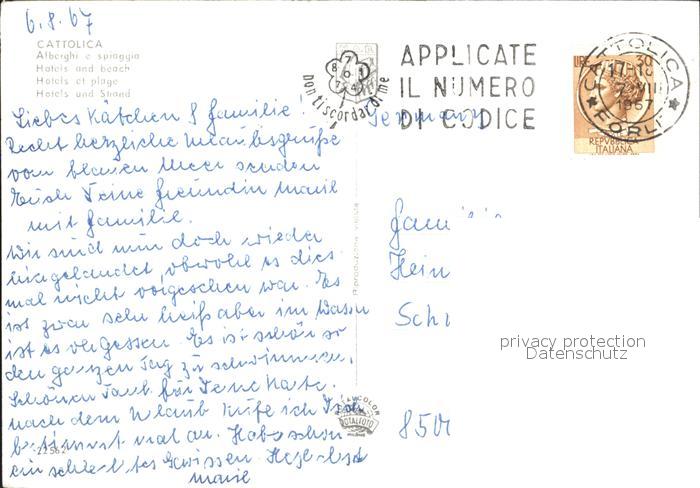 6.8.67
CATTOLICA
Alberghi e spiaggia
Hotels and beach
Hotels et plage
Hotels und Strand
non ti scordar di me
APPLICATE
IL NUMERO
DI CODICE
LIRE 30
REPVBBLICA
ITALIANA
CATTOLICA
17-18
7 VIII
1967
FORLI
Germany
Liebes Kätchen & Familie!
Recht herzliche Urlaubsgrüße
vom blauen Meer senden
Euch Deine Freundin
mit Familie.
Wir sind nun doch wieder
hier gelandet, obwohl es dies
mal nicht vorgesehen war. Es
ist zwar sehr heiß aber im Wasser
ist es vergessen. Es ist schön so
den ganzen Tag zu schwimmen.
Schönen Dank für Deine Karte.
nach dem Urlaub rufe ich Dich
bestimmt mal an. Habe schon
ein schlechtes Gewissen.
Fam
Hein
Sch
850
privacy protection
Datenschutz
Riproduzione vietata
TOTALFOTO
22562